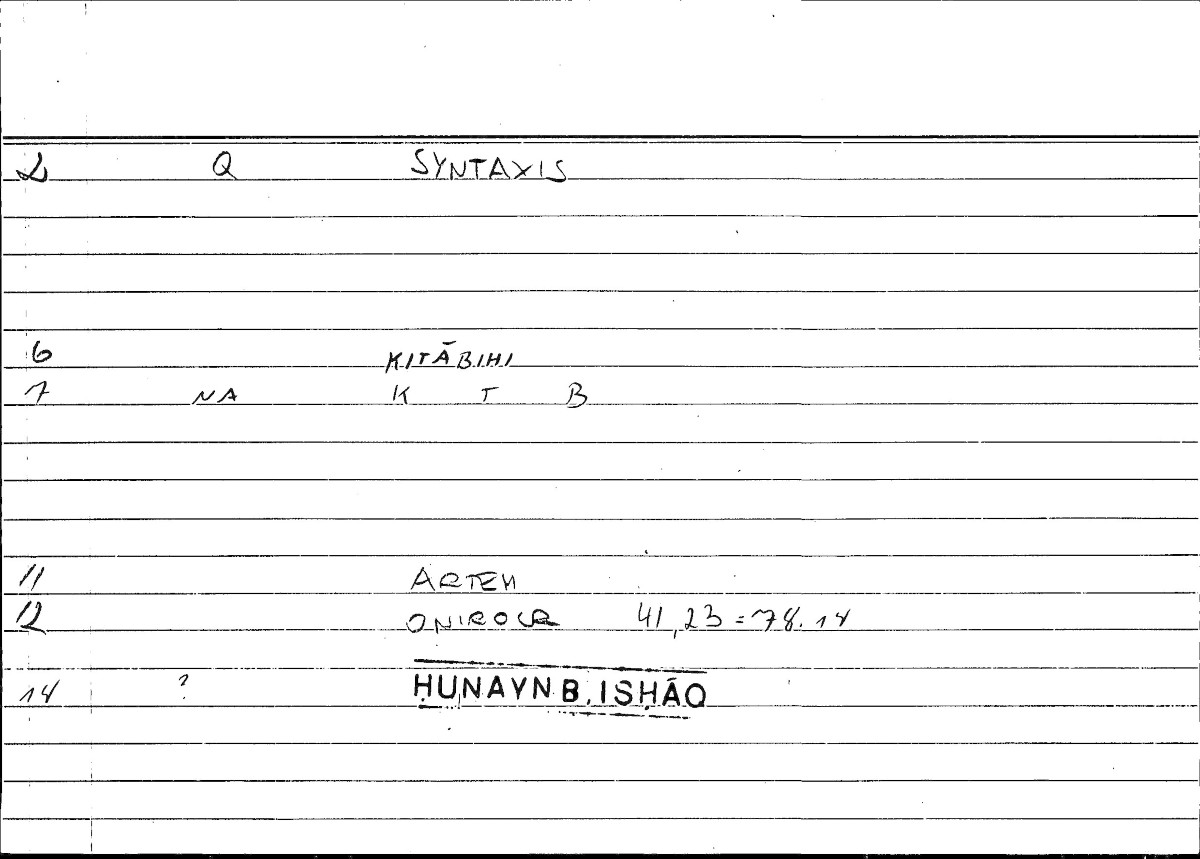 2 Q SYNTAXIS
6 KITĀBIHI
7 NA K T B
11 ARTEM
12 ONIROCR 41,23=78.14
14 ? ḤUNAYN B. ISḤĀQ